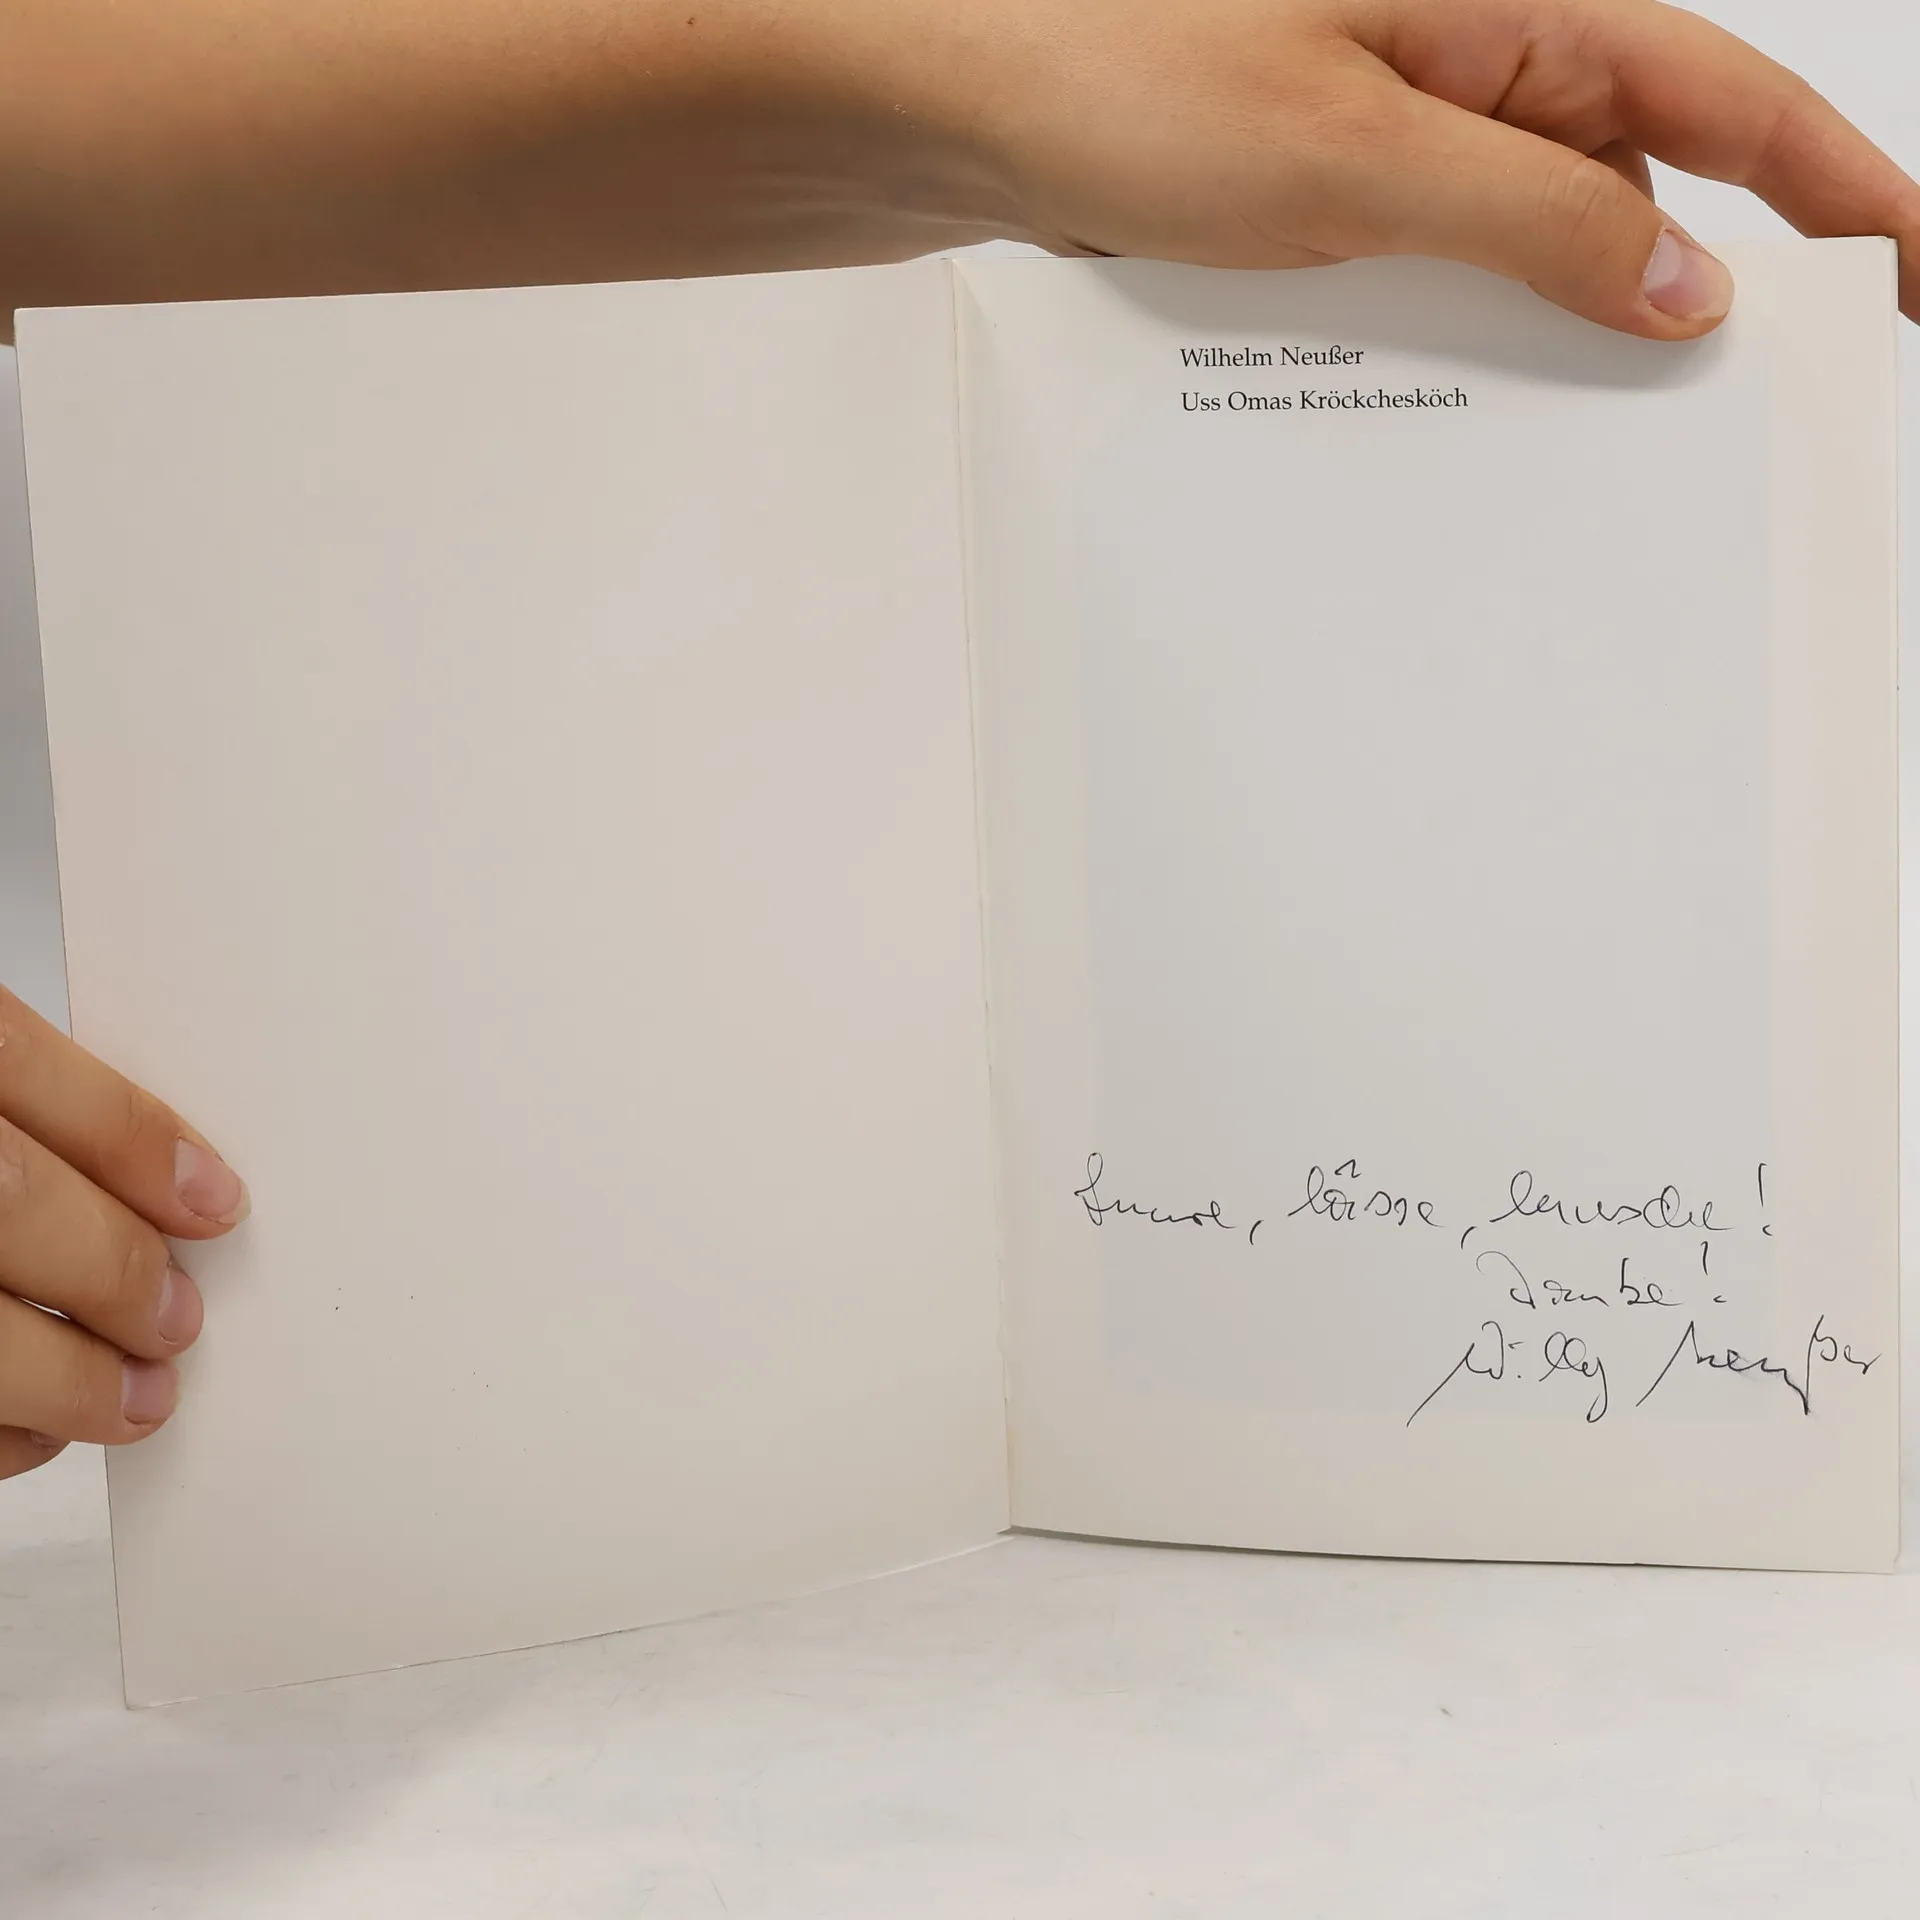 Wilhelm Neußer
Uss Omas Kröckcheskösch
lässe, !
Danke!
Willy Neußer